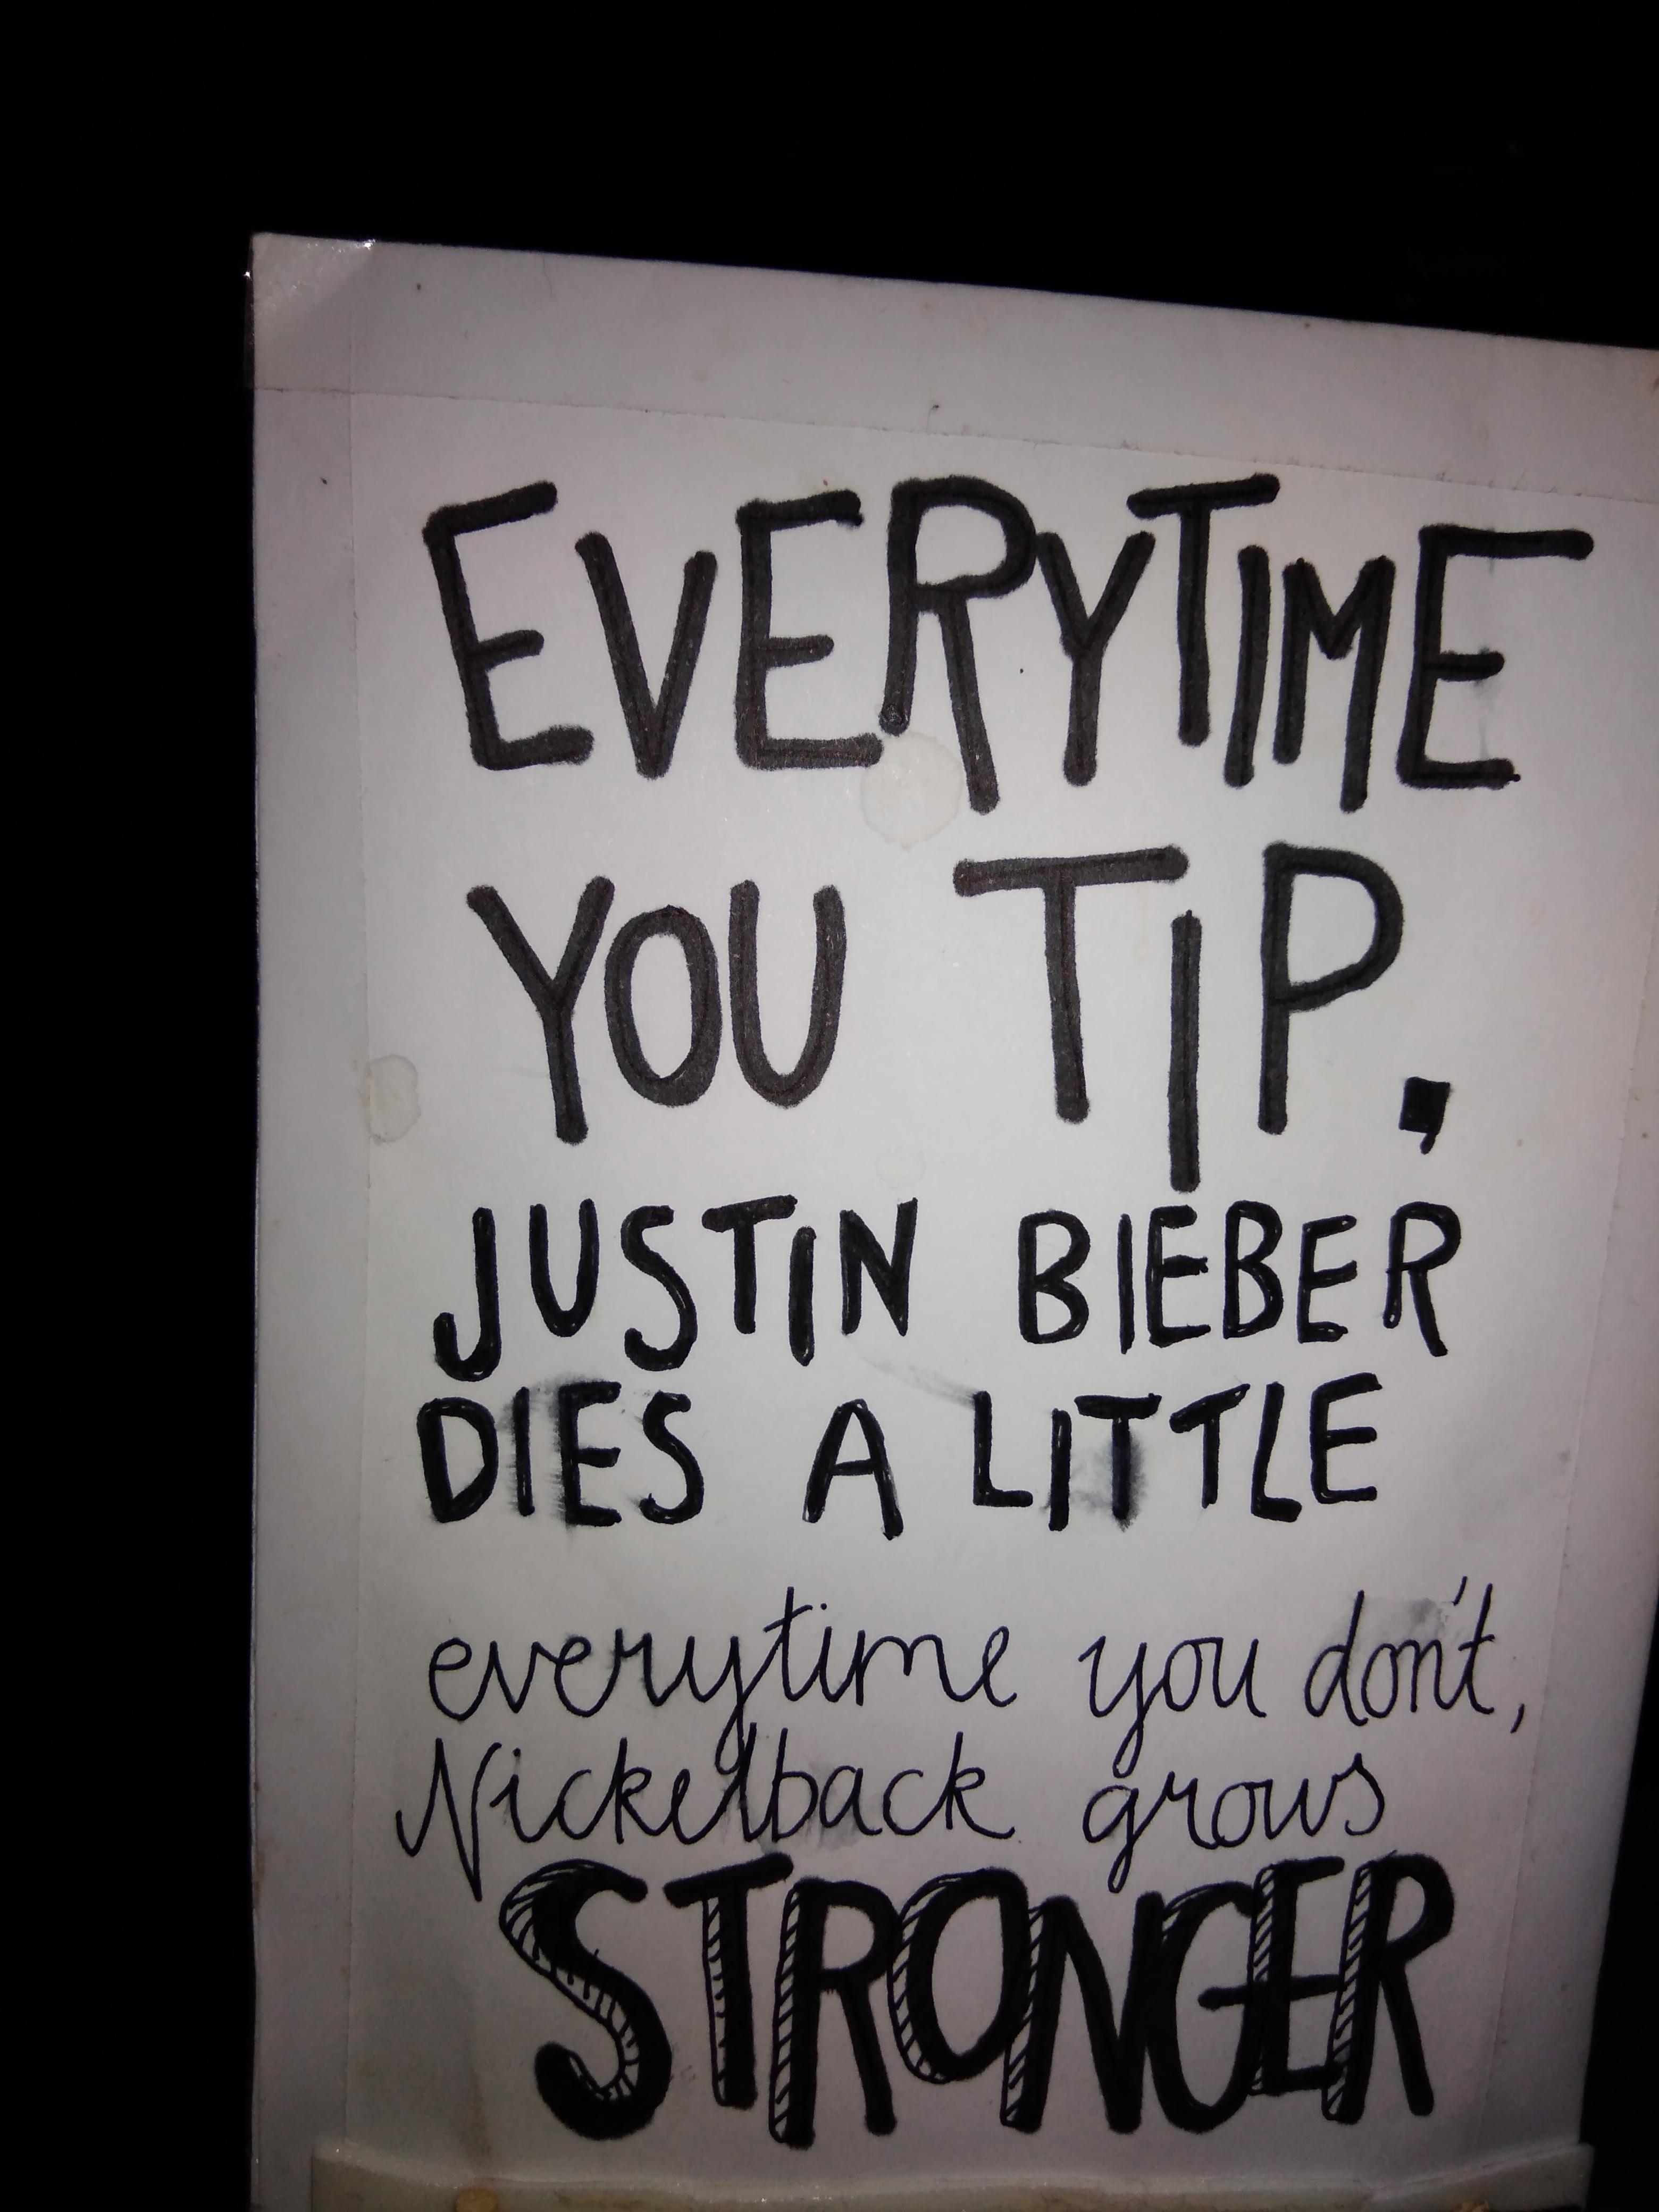 EVERYTIME
YOU TIP,
JUSTIN BIEBER
DIES A LITTLE
everytime you don't,
Nickelback grows
STRONGER